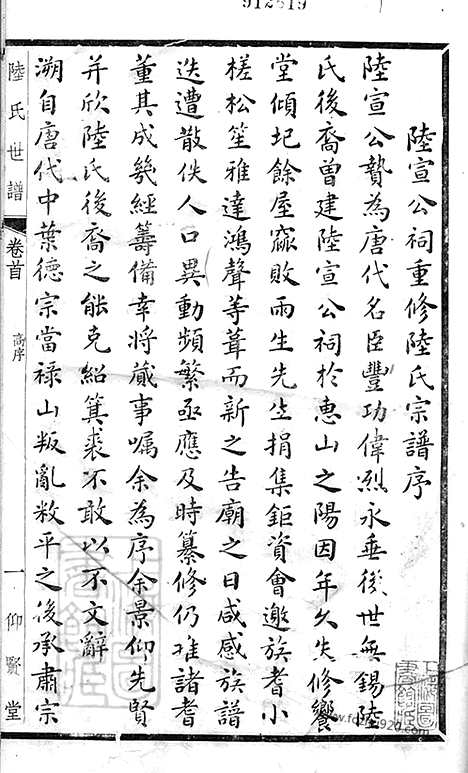 912819
陸宣公祠重修陸氏宗譜序
陸宣公贄為唐代名臣豐功偉烈永垂後世無錫陸
氏後裔曾建陸宣公祠於惠山之陽因年久失修饗
堂傾圮餘屋窳敗雨生先生捐集鉅資會邀族耆小
槎松笙雅達鴻聲等葺而新之告廟之日咸感族譜
迭遭散佚人口異動頻繁亟應及時纂修仍推諸耆
董其成幾經籌備幸將蕆事囑余為序余景仰先賢
并欣陸氏後裔之能克紹箕裘不敢以不文辭
溯自唐代中葉德宗當祿山叛亂敉平之後承肅宗
陸氏世譜
卷首
高序
一
仰賢堂